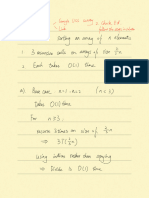 Sorting an array of n elements
1. 3 recursive calls on arrays of size 2/3 n
2. Each takes O(1) time
a) Base case n=1, n=2 (n<3)
Takes O(1) time
For n≥3
recurse 3 times on size of 2/3 n
⇒ 3T(2/3 n)
using indices rather than copying
⇒ Divide is O(1) time